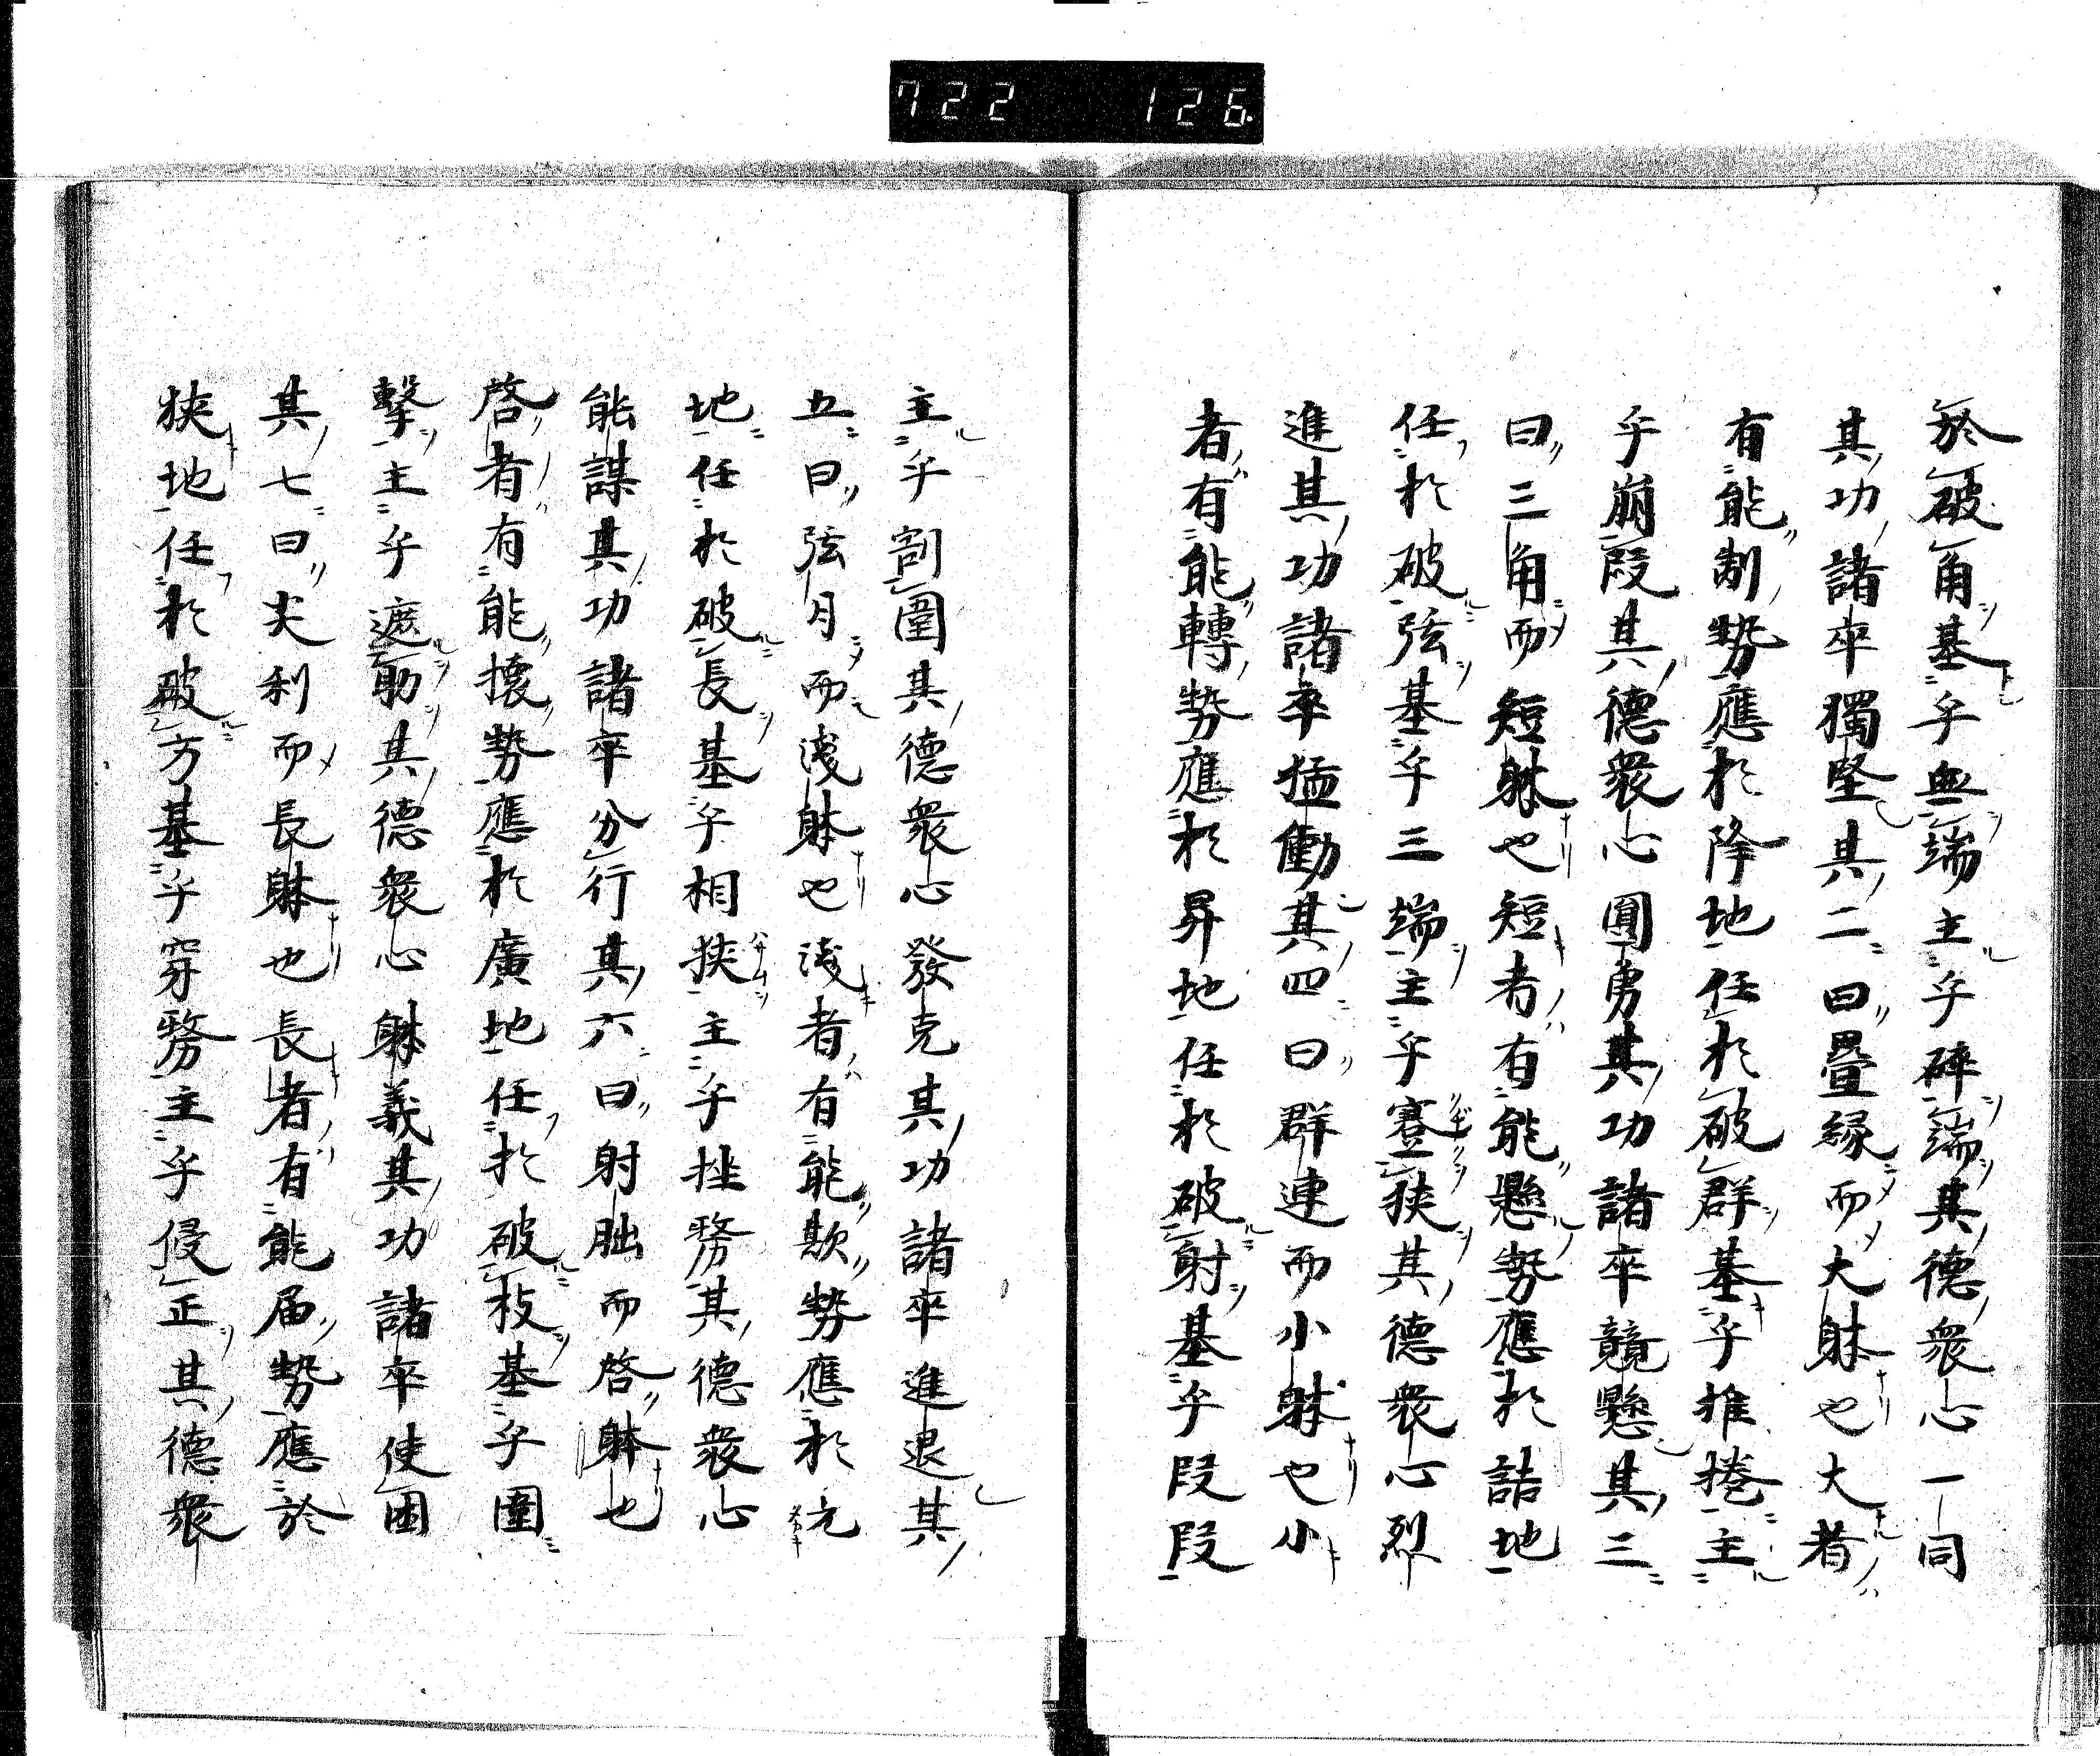 722 126
於破角基乎無端主乎碎端其德衆心一同
其功諸卒獨堅其二曰疊緣而大躰也大者
有能制勢應於降地任於破群基乎推捲主
乎崩段其德衆心圓勇其功諸卒競懸其三
曰三角而短躰也短者有能懸勢應於詰地
任於破弦基乎三端主乎蹇狹其德衆心烈
進其功諸卒猛働其四曰群連而小躰也小
者有能轉勢應於昇地任於破射基乎段段
主乎割圍其德衆心發克其功諸卒進退其
五曰弦月而淺躰也淺者有能欺勢應於
地任於破長基乎相狹主乎挫勢其德衆心
能謀其功諸卒分行其六曰射朏而啓躰也
啓者有能懷勢應於廣地任於破枝基乎圍
擊主乎遮助其德衆心躰義其功諸卒使困
其七曰尖利而長躰也長者有能届勢應於
狹地任於破方基乎穿勢主乎侵正其德衆